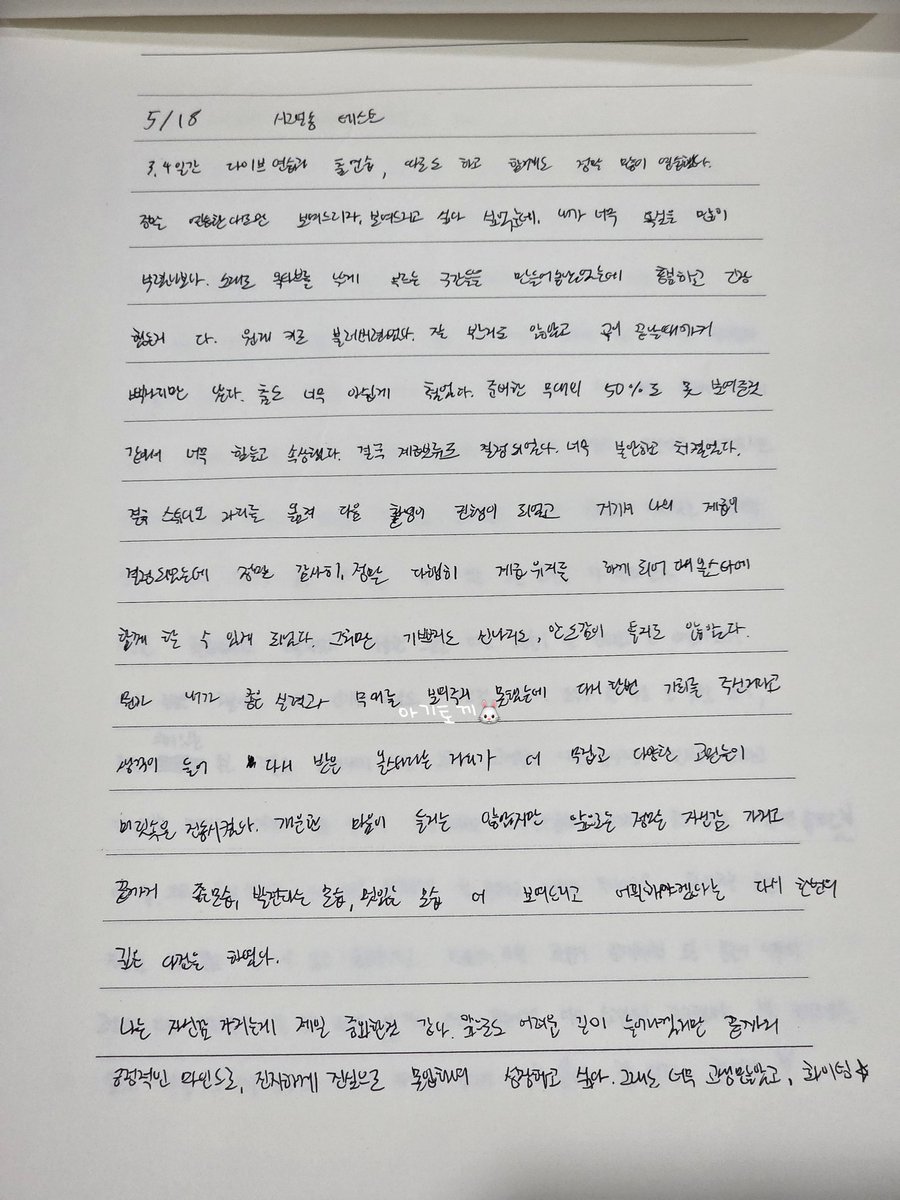 5/18 시그널송 테스트
3,4일간 다이브 연습과 춤연습, 따로도 하고 함께도 정말 많이 연습했다.
정말 연습한대로만 보여드리자, 보여드리고 싶다 싶었는데, 내가 너무 욕심을 많이
부렸나보다. 노래도 옥타브를 낮게 부르는 구간들을 만들어놓았는데 흥분하고 긴장
했는지 다 원래 키로 불러버렸었다. 잘 부르지도 않았고 곡이 끝날때까지
삑나지만 났다. 춤도 너무 아쉽게 췄었다. 준비한 무대의 50%도 못 보여준것
같아서 너무 힘들고 속상했다. 결국 제한보류로 결정되었다. 너무 불안하고 처절했다.
결국 스튜디오 자리를 옮겨 다음 촬영이 진행이 되었고 거기서 나의
결정되었는데 정말 감사히, 정말 다행히 유지를 하게 되어 올스타에
함께 할 수 있게 되었다. 그치만 기쁘지도 신나지도, 안도감이 들지도 않았다.
뭔가 내가 좋은 실력과 무대를 보여주지 못했는데 다시 한번 기회를 주신거라고
아기토끼🐰
생각이 들어 다시 받은 올스타라는 자리가 더 무겁고 다양한 고민들이
머릿속을 진동시켰다. 개운한 마음이 들지는 않았지만 앞으로는 정말 자신감 가지고
끝까지 좋은모습, 발전하는 모습, 멋있는 모습 더 보여드리고 어필해야겠다는 다시 한번의
깊은 다짐을 하였다.
나는 자신감 가지는게 제일 중요한것 같다. 앞으로도 어려운 길이 늘어나겠지만 끝까지
긍정적인 마인드로, 진지하게 진심으로 몰입하며 성장하고 싶다. 그래도 너무 고생많았고, 화이팅☆